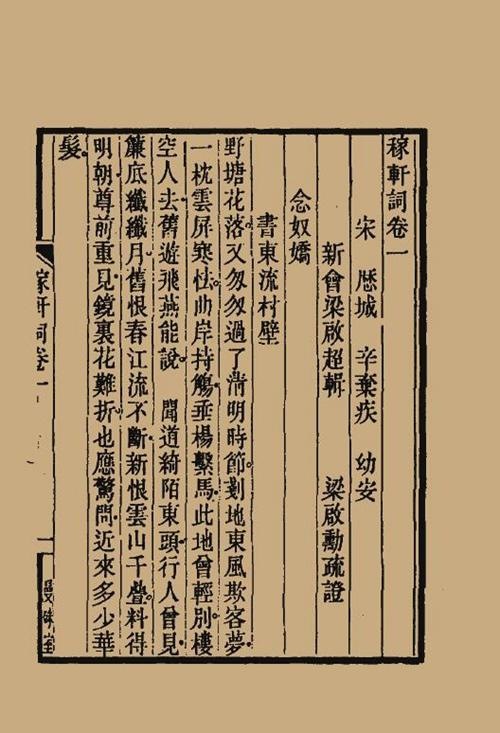 稼軒詞卷一
宋　厯城　辛棄疾　幼安
新會梁啟超輯　梁啟勳疏證
念奴嬌
書東流村壁
野塘花落、又匆匆過了清明時節。剗地東風欺客夢、
一枕雲屏寒怯。曲岸持觴、垂楊繫馬、此地曾輕別。樓
空人去、舊遊飛燕能說。　聞道綺陌東頭、行人曾見、
簾底纖纖月。舊恨春江流不斷、新恨雲山千疊。料得
明朝尊前重見、鏡裏花難折。也應驚問、近來多少華
髮。
稼軒詞卷一
一
曼殊室